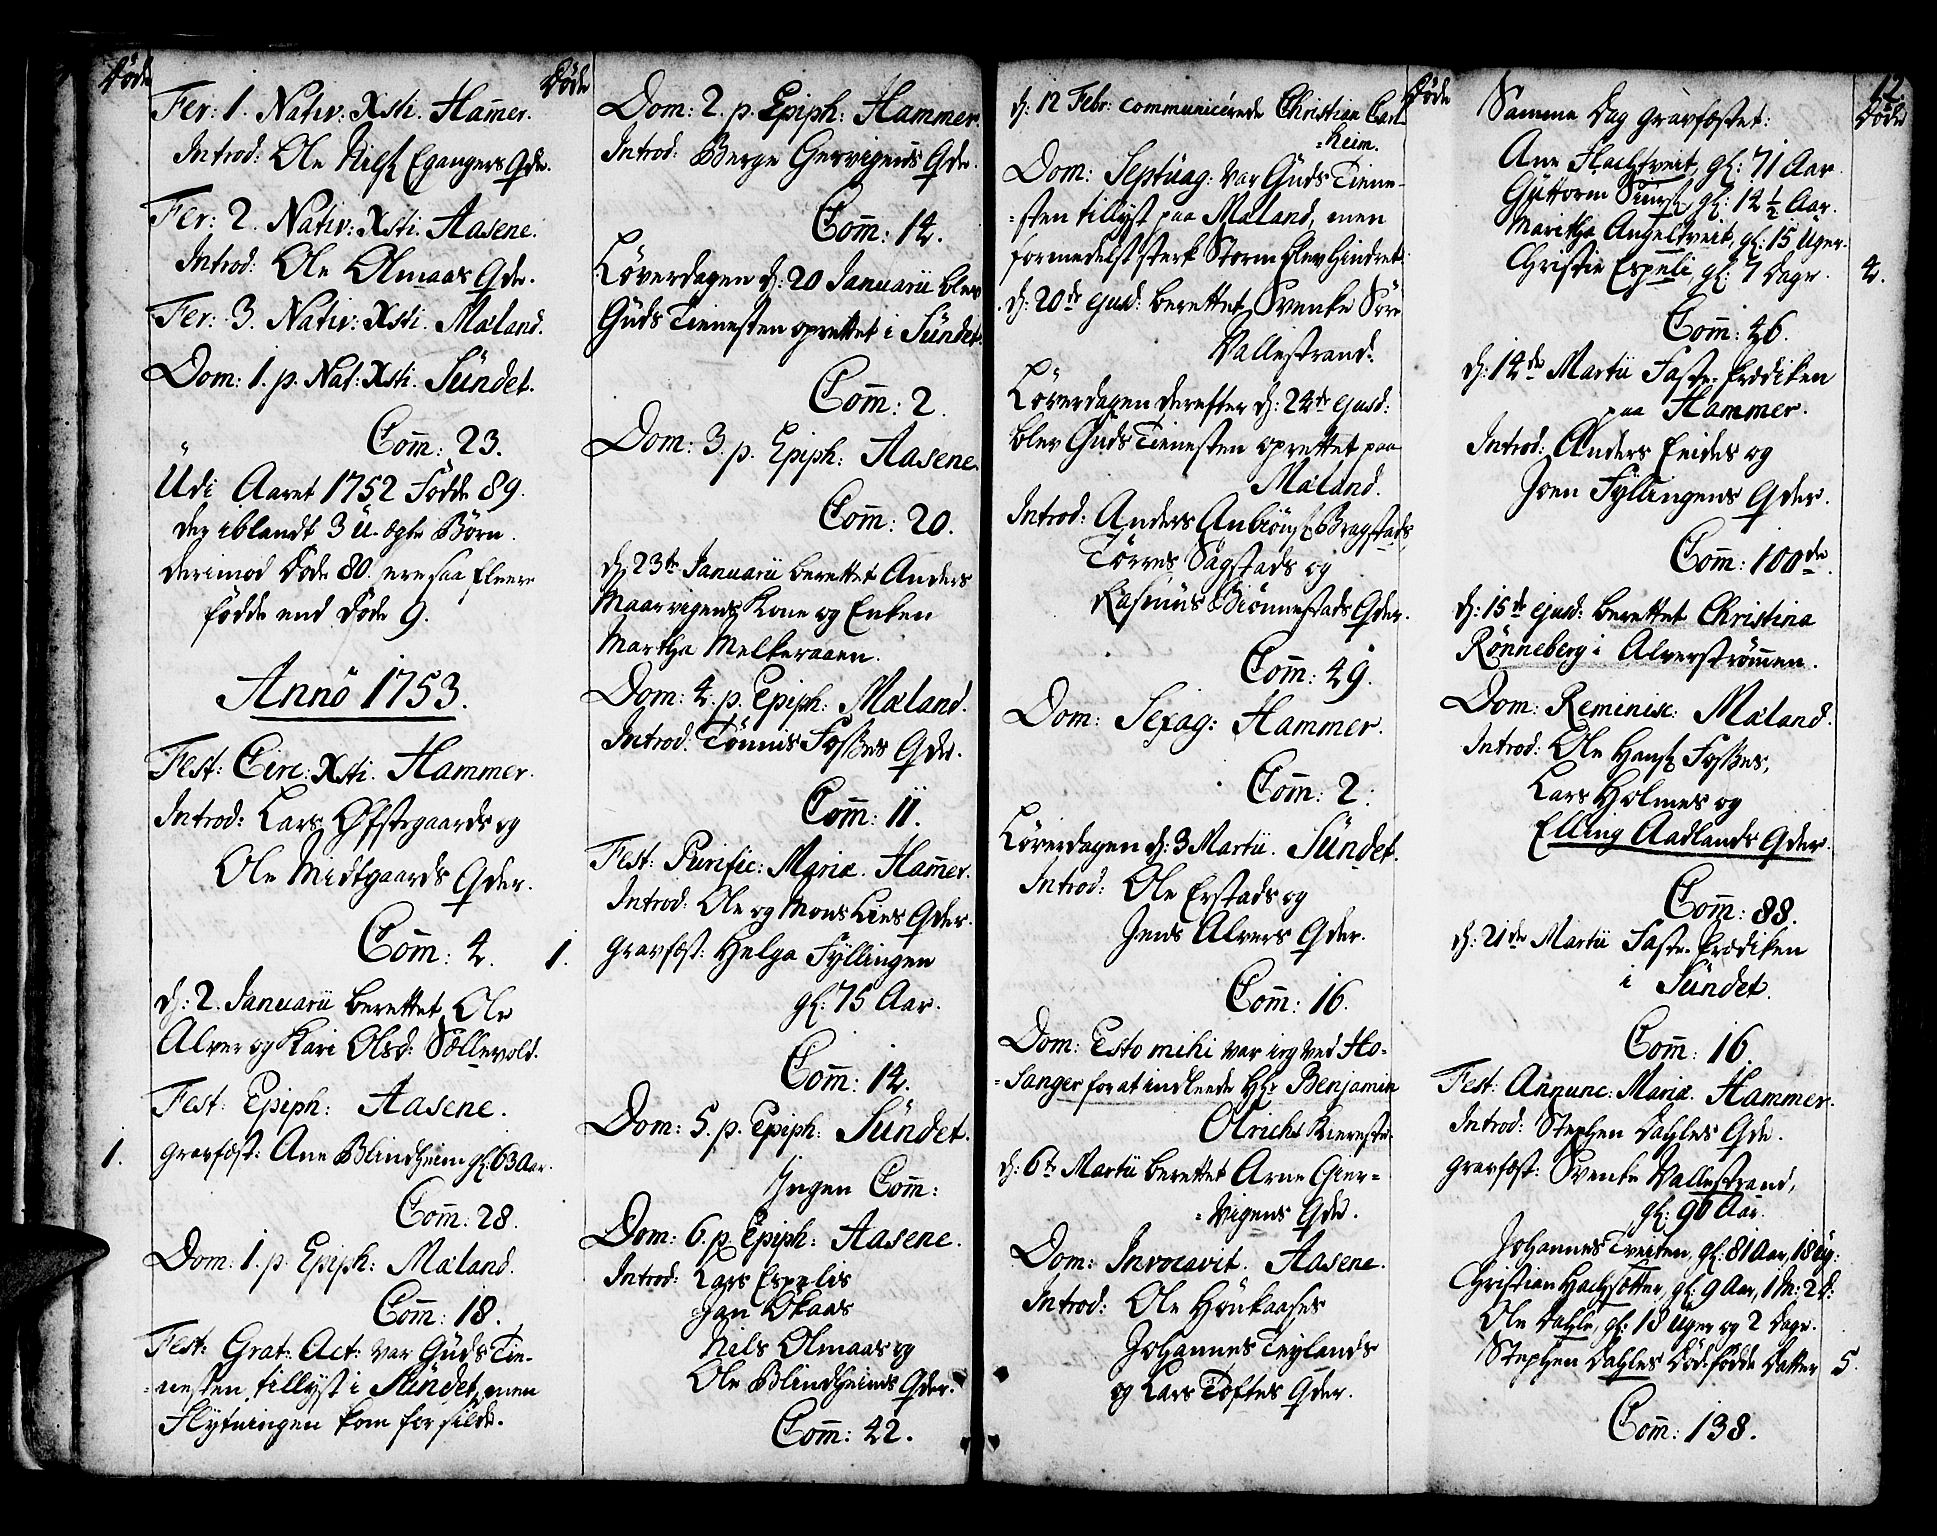 Döde
Fer: 1. Nativ: Xsti. Ham̄er.
Introd: Ole Nielß Egangers Qde.
Fer: 2. Nativ: Xsti. Aasene.
Introd: Ole Olmaas Qde.
Fer: 3. Nativ: Xsti. Mæland.
Dom: 1. p. Nat: Xsti. Sündet.
Com̄: 23.
Udi Aaret 1752 Födde 89.
der iblandt 3 u-ægte Börn.
derimod Döde 80. ere saa fleere
födde end Döde 9.
Anno 1753.
Fest: Circ: Xsti. Hammer.
Introd: Lars Øfstegaards og
Ole Midtgaards Qder.
Com̄: 4.
d: 2. Januarii berettet Ole
Alver og Kari Olsd: Sællevold.
Fest: Epiph: Aasene.
1. gravfæst: Ane Blindheim gl: 63 Aar.
Com̄: 28.
Dom: 1. p. Epiph: Mæland.
Com̄: 18.
Fest: Grat: Act: var Guds Tie-
=nesten tillyst i Sündet, men
Flytningen kom for silde.
Döde
Dom: 2. p. Epiph: Hammer.
Introd: Berge Gervigens Qde.
Com̄: 14.
Löverdagen d: 20 Januarii blev
Guds Tienesten oprettet i Sündet.
Com̄: 2.
Dom: 3. p. Epiph: Aasene.
Com̄: 20.
d: 23de Januarii berettet Anders
Maarvigens Kone og Enken
Martha Melkeraaen.
Dom: 4. p. Epiph: Mæland.
Introd: Tönnis Foßes Qde.
Com̄: 11.
Fest: Purific: Mariæ. Ham̄er.
Introd: Ole og Mons Lies Qder.
1. gravfæst: Helga Fyllingen
gl: 75 Aar.
Com̄: 14.
Dom: 5. p. Epiph: Sündet.
Ingen Com̄:
Dom: 6. p. Epiph: Aasene.
Introd: Lars Espelis
Jan Okaas
Niels Olmaas og
Ole Blindheims Qder.
Com̄: 42.
d: 12 Febr: communicerede Christian Carl-
=heim.
Dom: Septuag: var Guds Tiene-
=sten tillyst paa Mæland, men
formedelst sterk Storm blev hindret.
d: 20de ejusd: berettet Svenke Söre
Vallestrand.
Löverdagen derefter d: 24de ejusd:
blev Guds Tienesten oprettet paa
Mæland.
Introd: Anders Anbiönß Bragstads
Törres Sagstads og
Rasmus Biönnestads Qder.
Com̄: 49.
Dom: Sexag: Hammer.
Com̄: 2.
Löverdagen d: 3 Martii. Sündet.
Introd: Ole Erstads og
Jens Alvers Qder.
Com̄: 16.
Dom: Esto mihi var jeg ved Ho-
=sanger for at indlede Hr: Benjamin
Olrichs Kiereste.
d: 6te Martii berettet Arne Gier-
=vigens Qde.
Dom: Invocavit. Aasene.
Introd: Ole Høukaases
Johannes Teylands
og Lars Toftes Qder.
Döde
12
Döde
Samme Dag gravfæstet:
Ane Flachtveit, gl: 71 Aar.
Guttorm Simß, gl: 12 ½ Aar.
Maritha Angeltveit, gl: 15 Uger.
Christie Espeli, gl: 7 Dage. 4.
Com̄: 46.
d: 14de Martii Faste-Prædiken
paa Hammer.
Introd: Anders Eides og
Joen Fyllingens Qder.
Com̄: 100de.
d: 15de ejusd: berettet Christina
Rönneberg i Alverströmmen.
Dom: Reminisc: Mæland.
Introd: Ole Hanß Foßes,
Lars Holmes og
Elling Aadlands Qder.
Com̄: 88.
d: 21de Martii Faste-Prædiken
i Sündet.
Com̄: 16.
Fest: Annunc: Mariæ. Hammer.
Introd: Stephen Dahles Qde.
gravfæst: Svenke Vallestrand,
gl: 90 Aar.
Johannes Tveiten, gl: 81 Aar, 18 Ug:
Christian Hachsötter, gl: 9 Aar, 1 M: 2 D:
Ole Dahle, gl: 18 Uger og 2 Dage.
Stephen Dahles Död-födde Datter 5.
Com̄: 138.